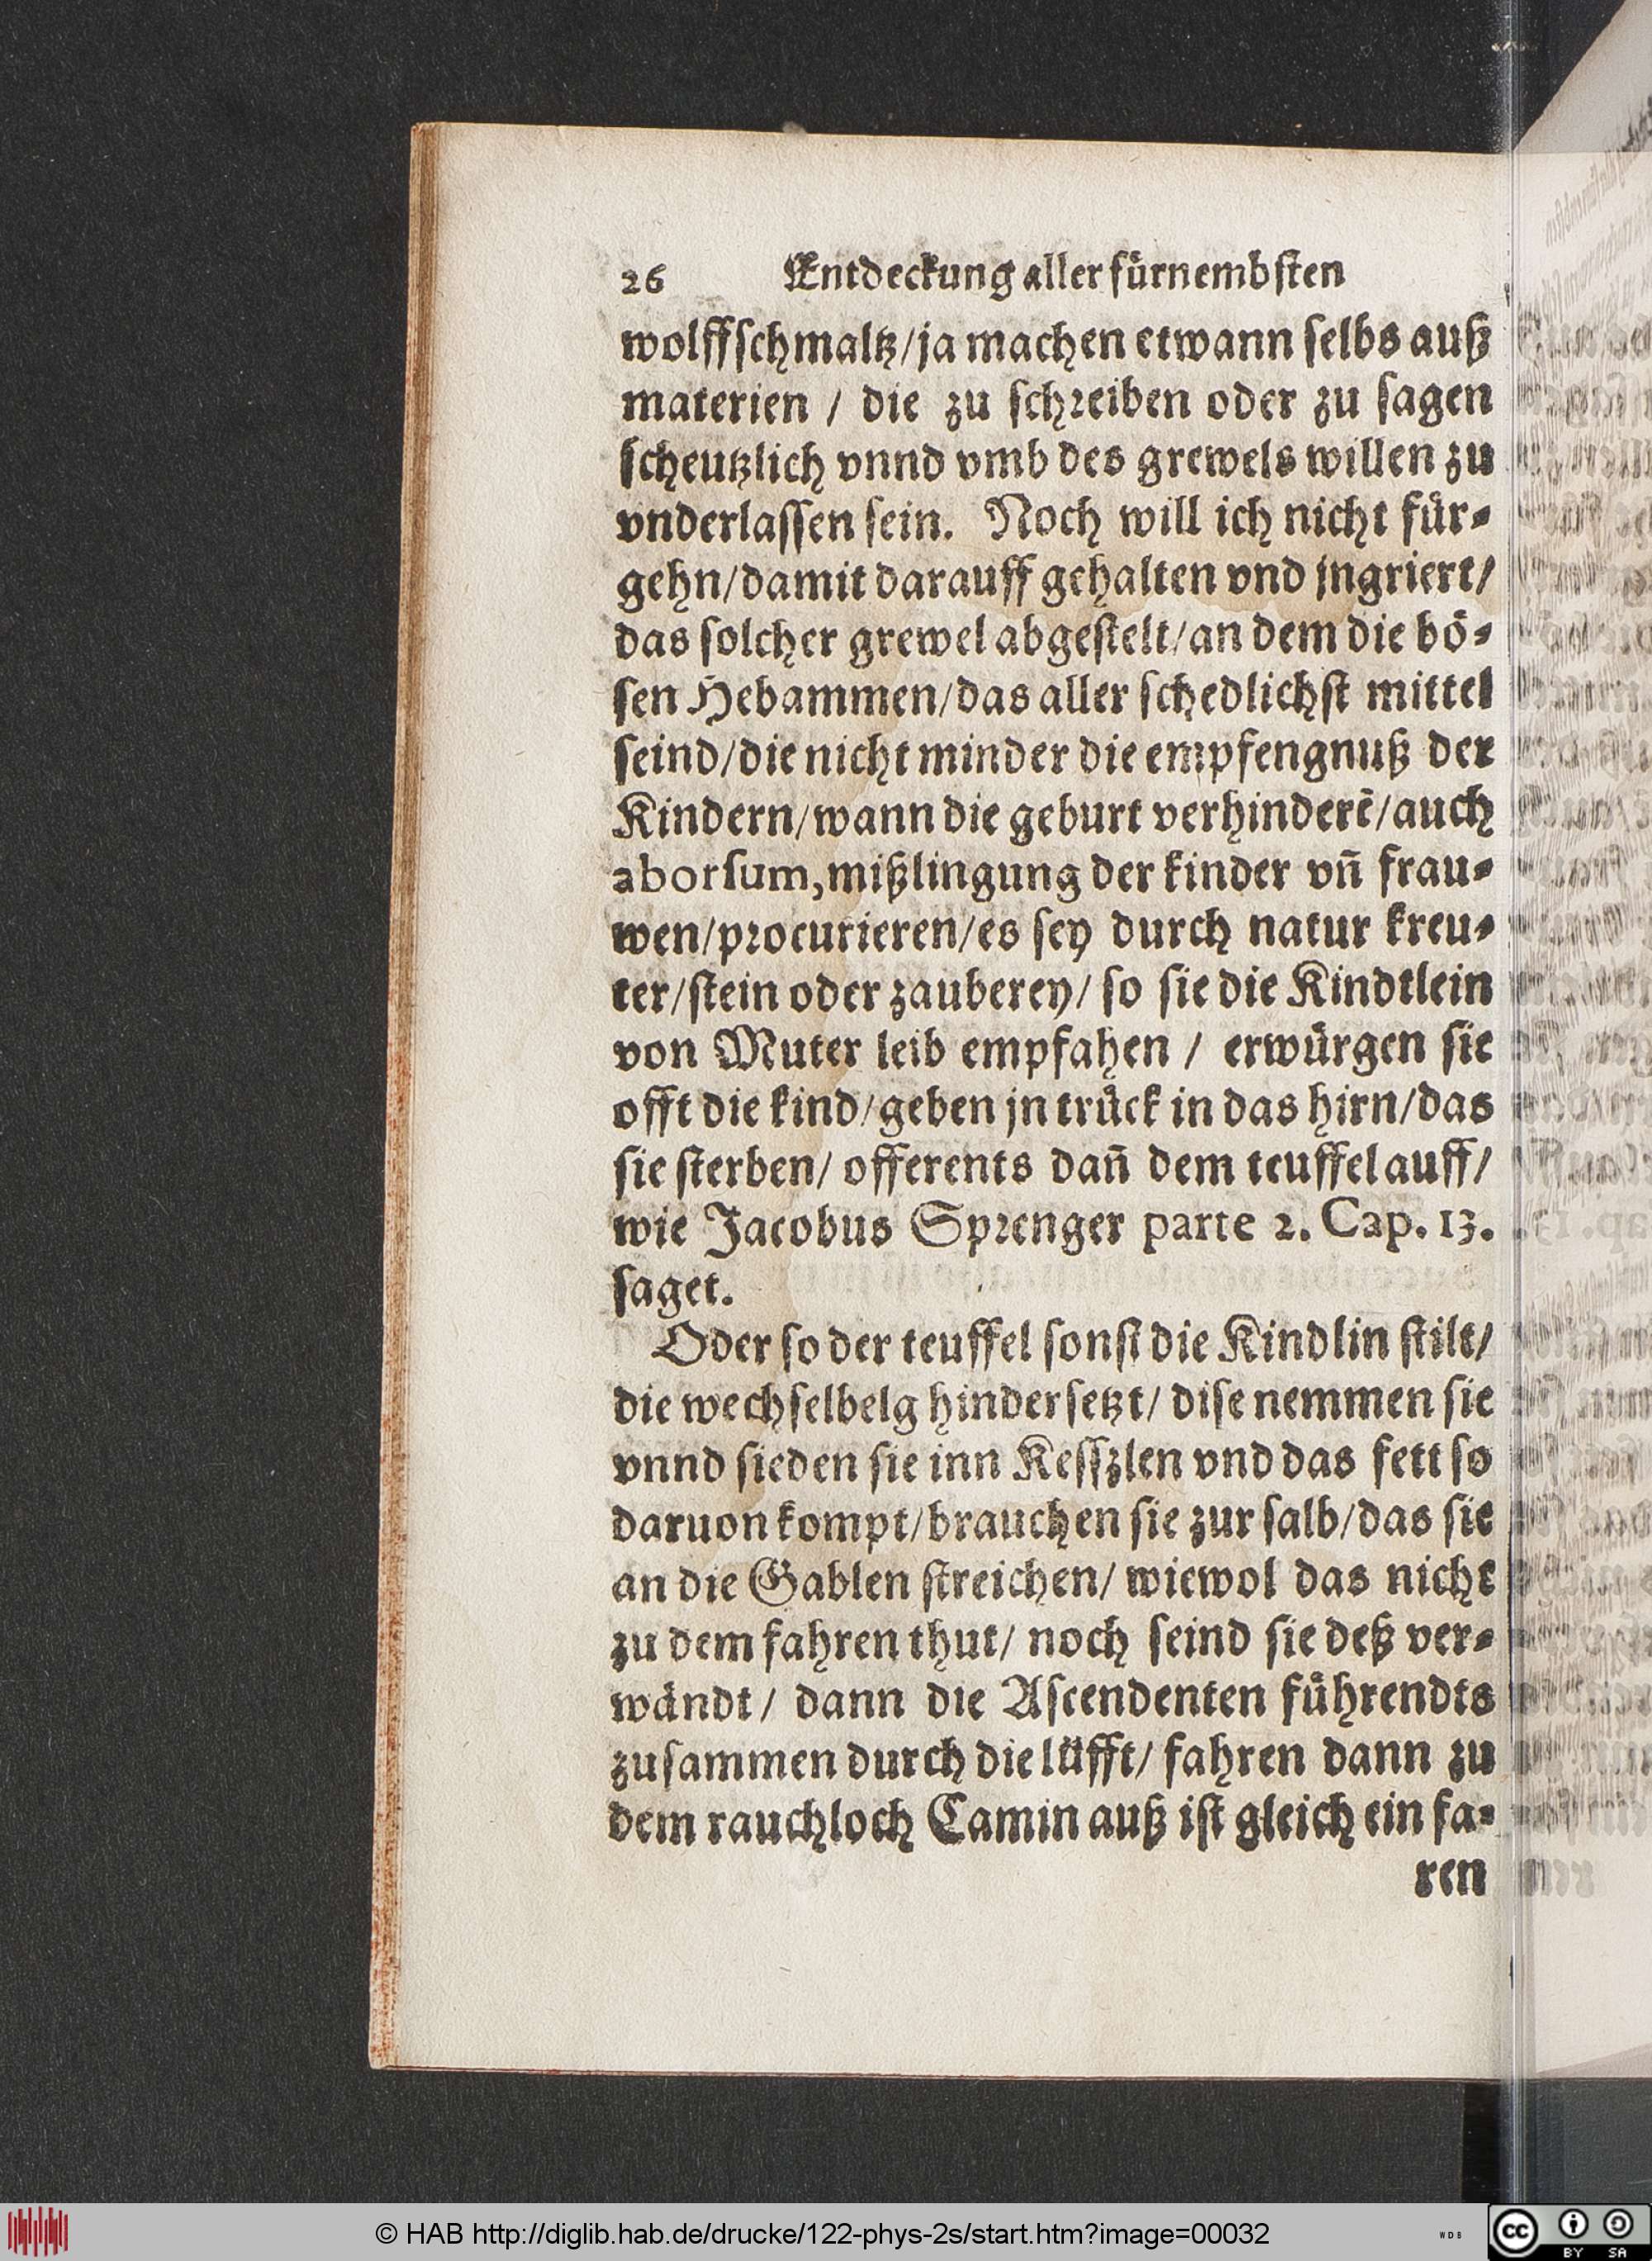 26 Entdeckung aller fürnembſten
wolffſchmaltz/ja machen etwann ſelbs auß
materien / die zu ſchreiben oder zu ſagen
ſcheutzlich vnnd vmb des grewels willen zu
vnderlaſſen ſein. Noch will ich nicht für⸗
gehn/damit darauff gehalten vnd jngriert/
das ſolcher grewel abgeſtelt/an dem die bö⸗
ſen Hebammen/das aller ſchedlichſt mittel
ſeind/die nicht minder die empfengnuß der
Kindern/wann die geburt verhinderẽ/auch
aborſum,mißlingung der kinder vñ frau⸗
wen/procurieren/es ſey durch natur kreu⸗
ter/ſtein oder zauberey/ ſo ſie die Kindtlein
von Muter leib empfahen / erwürgen ſie
offt die kind/geben jn trück in das hirn/das
ſie ſterben/ offerents dañ dem teuffel auff/
wie Jacobus Sprenger parte 2. Cap. 13.
ſaget.
Oder ſo der teuffel ſonſt die Kindlin ſtilt/
die wechſelbelg hinderſetzt/ diſe nemmen ſie
vnnd ſieden ſie inn Keſſzlen vnd das fett ſo
daruon kompt/brauchen ſie zur ſalb/das ſie
an die Gablen ſtreichen/ wiewol das nicht
zu dem fahren thut/ noch ſeind ſie deß ver⸗
wändt/ dann die Aſcendenten führendts
zuſammen durch die lüfft/ fahren dann zu
dem rauchloch Camin auß iſt gleich ein fa⸗
ren
© HAB http://diglib.hab.de/drucke/122-phys-2s/start.htm?image=00032
WDB
CC BY SA